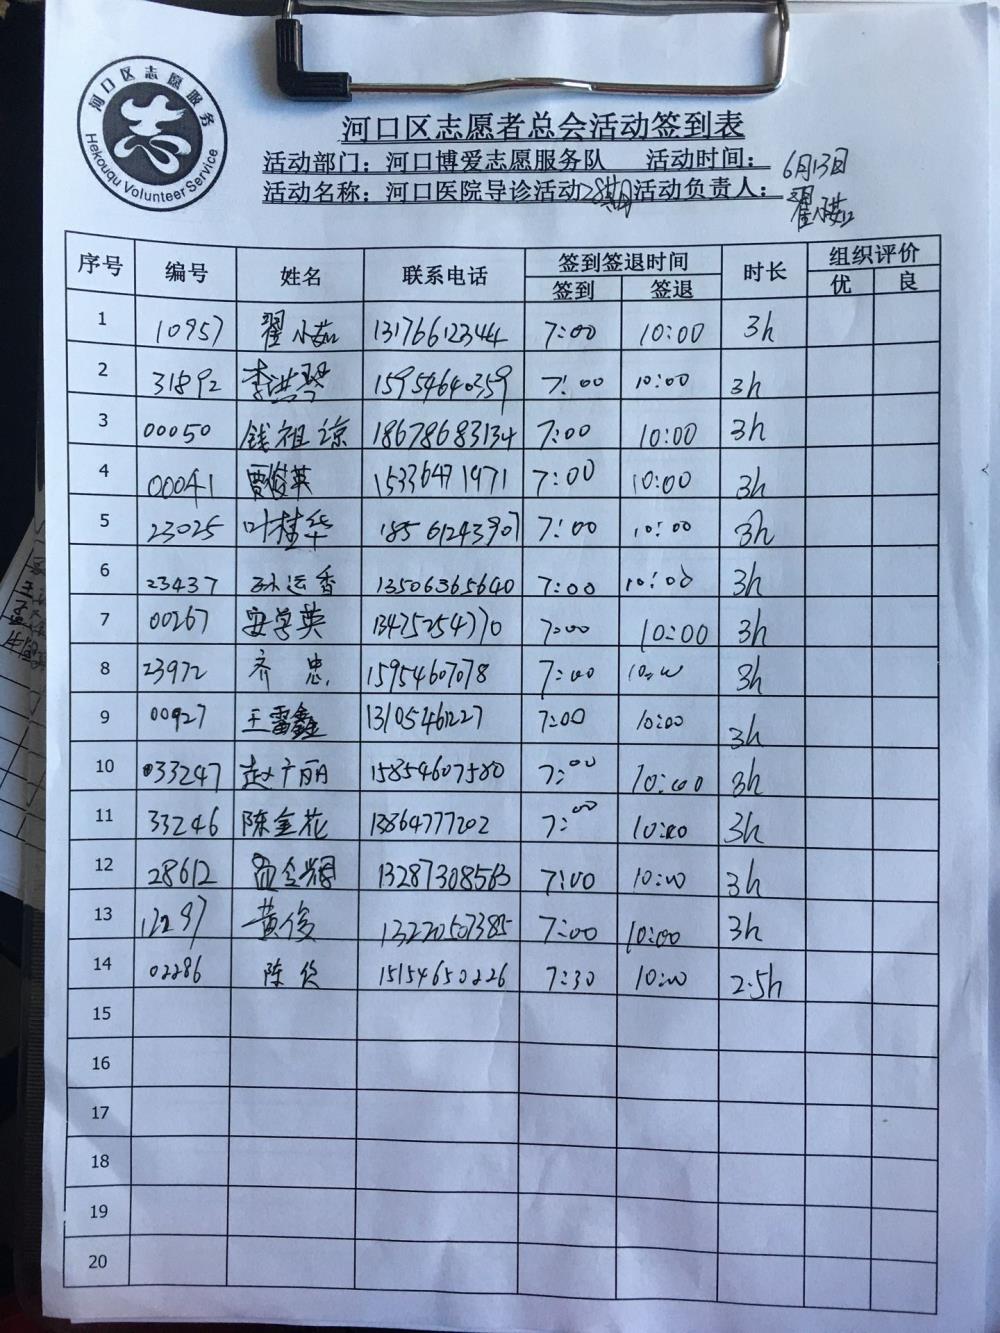 河口区志愿服务
Hekouqu Volunteer Service
河口区志愿者总会活动签到表
活动部门：河口博爱志愿服务队 活动时间： 6月13日
活动名称：河口医院导诊活动28期 活动负责人： 翟小茹
序号 编号 姓名 联系电话 签到签退时间 时长 组织评价
签到 签退 优 良
1 10957 翟小茹 13176612344 7:00 10:00 3h
2 31892 李洪琴 15954640359 7:00 10:00 3h
3 00050 钱祖谅 18678683134 7:00 10:00 3h
4 00041 贾俊英 15336471971 7:00 10:00 3h
5 23025 叶桂华 18561243907 7:00 10:00 3h
6 23437 孙运香 13506365640 7:00 10:00 3h
7 00267 安学英 13475254770 7:00 10:00 3h
8 23972 齐忠 15954607078 7:00 10:00 3h
9 00927 王雷鑫 13105461227 7:00 10:00 3h
10 033247 赵广丽 15854607580 7:00 10:00 3h
11 33246 陈金花 13864777202 7:00 10:00 3h
12 28612 13287308563 7:00 10:00 3h
13 12297 黄俊 13220507385 7:00 10:00 3h
14 02286 陈 15154650226 7:30 10:00 2.5h
15
16
17
18
19
20